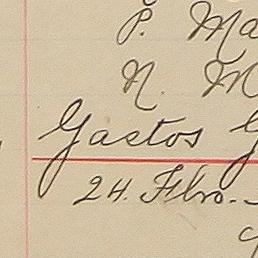 P. Ma
N. M
Gastos G
24. Febro.